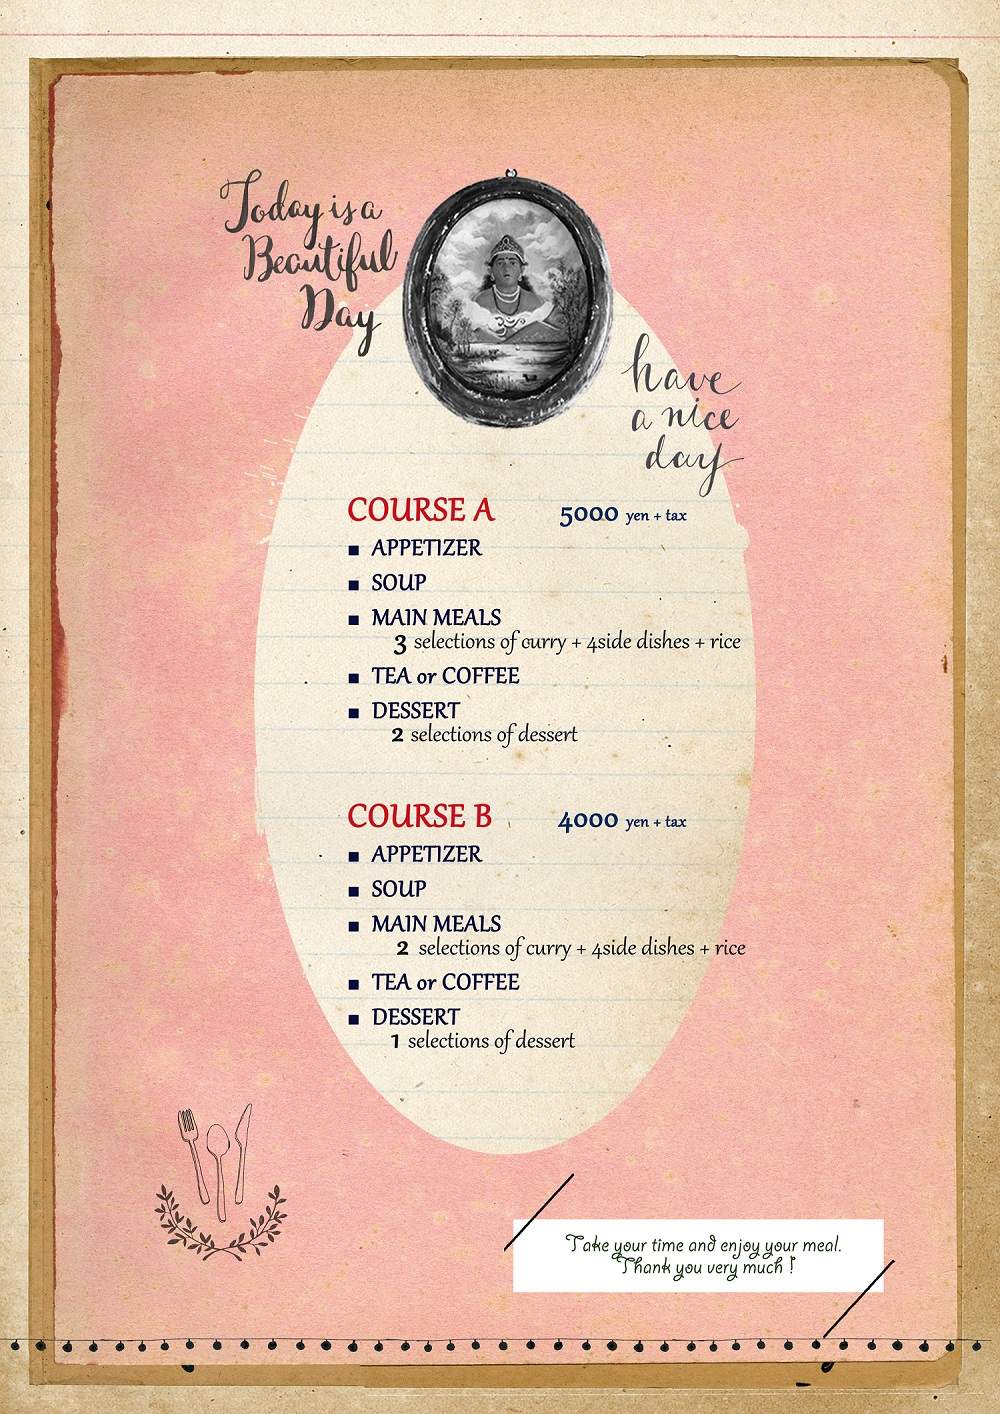 Today is a
Beautiful
Day
have
a nice
day
COURSE A 5000 yen + tax
▪ APPETIZER
▪ SOUP
▪ MAIN MEALS
3 selections of curry + 4side dishes + rice
▪ TEA or COFFEE
▪ DESSERT
2 selections of dessert
COURSE B 4000 yen + tax
▪ APPETIZER
▪ SOUP
▪ MAIN MEALS
2 selections of curry + 4side dishes + rice
▪ TEA or COFFEE
▪ DESSERT
1 selections of dessert
Take your time and enjoy your meal.
Thank you very much !